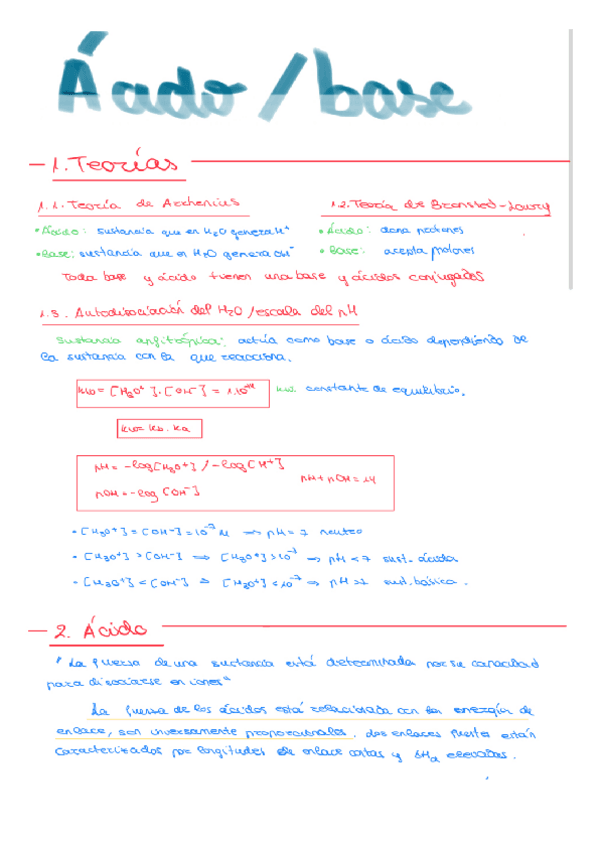 Ácido/base
1. Teorías
1.1. Teoría de Arrhenius
• Ácido: sustancia que en H₂O genera H⁺
• Base: sustancia que en H₂O genera OH⁻
1.2. Teoría de Bronsted-Lowry
• Ácido: dona protones
• Base: acepta protones
Toda base y ácido tienen una base y ácidos conjugados
1.3. Autodisociación del H₂O / escala del pH
Sustancia anfitrópica: actúa como base o ácido dependiendo de
la sustancia con la que reacciona.
Kw = [H₃O⁺]·[OH⁻] = 1·10⁻¹⁴ Kw: constante de equilibrio.
Kw = Kb·Ka
pH = -log[H₃O⁺] / -log[H⁺]
pOH = -log[OH⁻]
pH + pOH = 14
• [H₃O⁺] = [OH⁻] = 10⁻⁷ M → pH = 7 neutro
• [H₃O⁺] > [OH⁻] ⇒ [H₃O⁺] > 10⁻⁷ → pH < 7 sust. ácida
• [H₃O⁺] < [OH⁻] ⇒ [H₃O⁺] < 10⁻⁷ ⇒ pH > 7 sust. básica.
2. Ácido
"La fuerza de una sustancia está determinada por su capacidad
para disociarse en iones"
La fuerza de los ácidos está relacionada con la energía de
enlace, son inversamente proporcionales. Los enlaces fuertes están
caracterizados por longitudes de enlace cortas y elevadas.